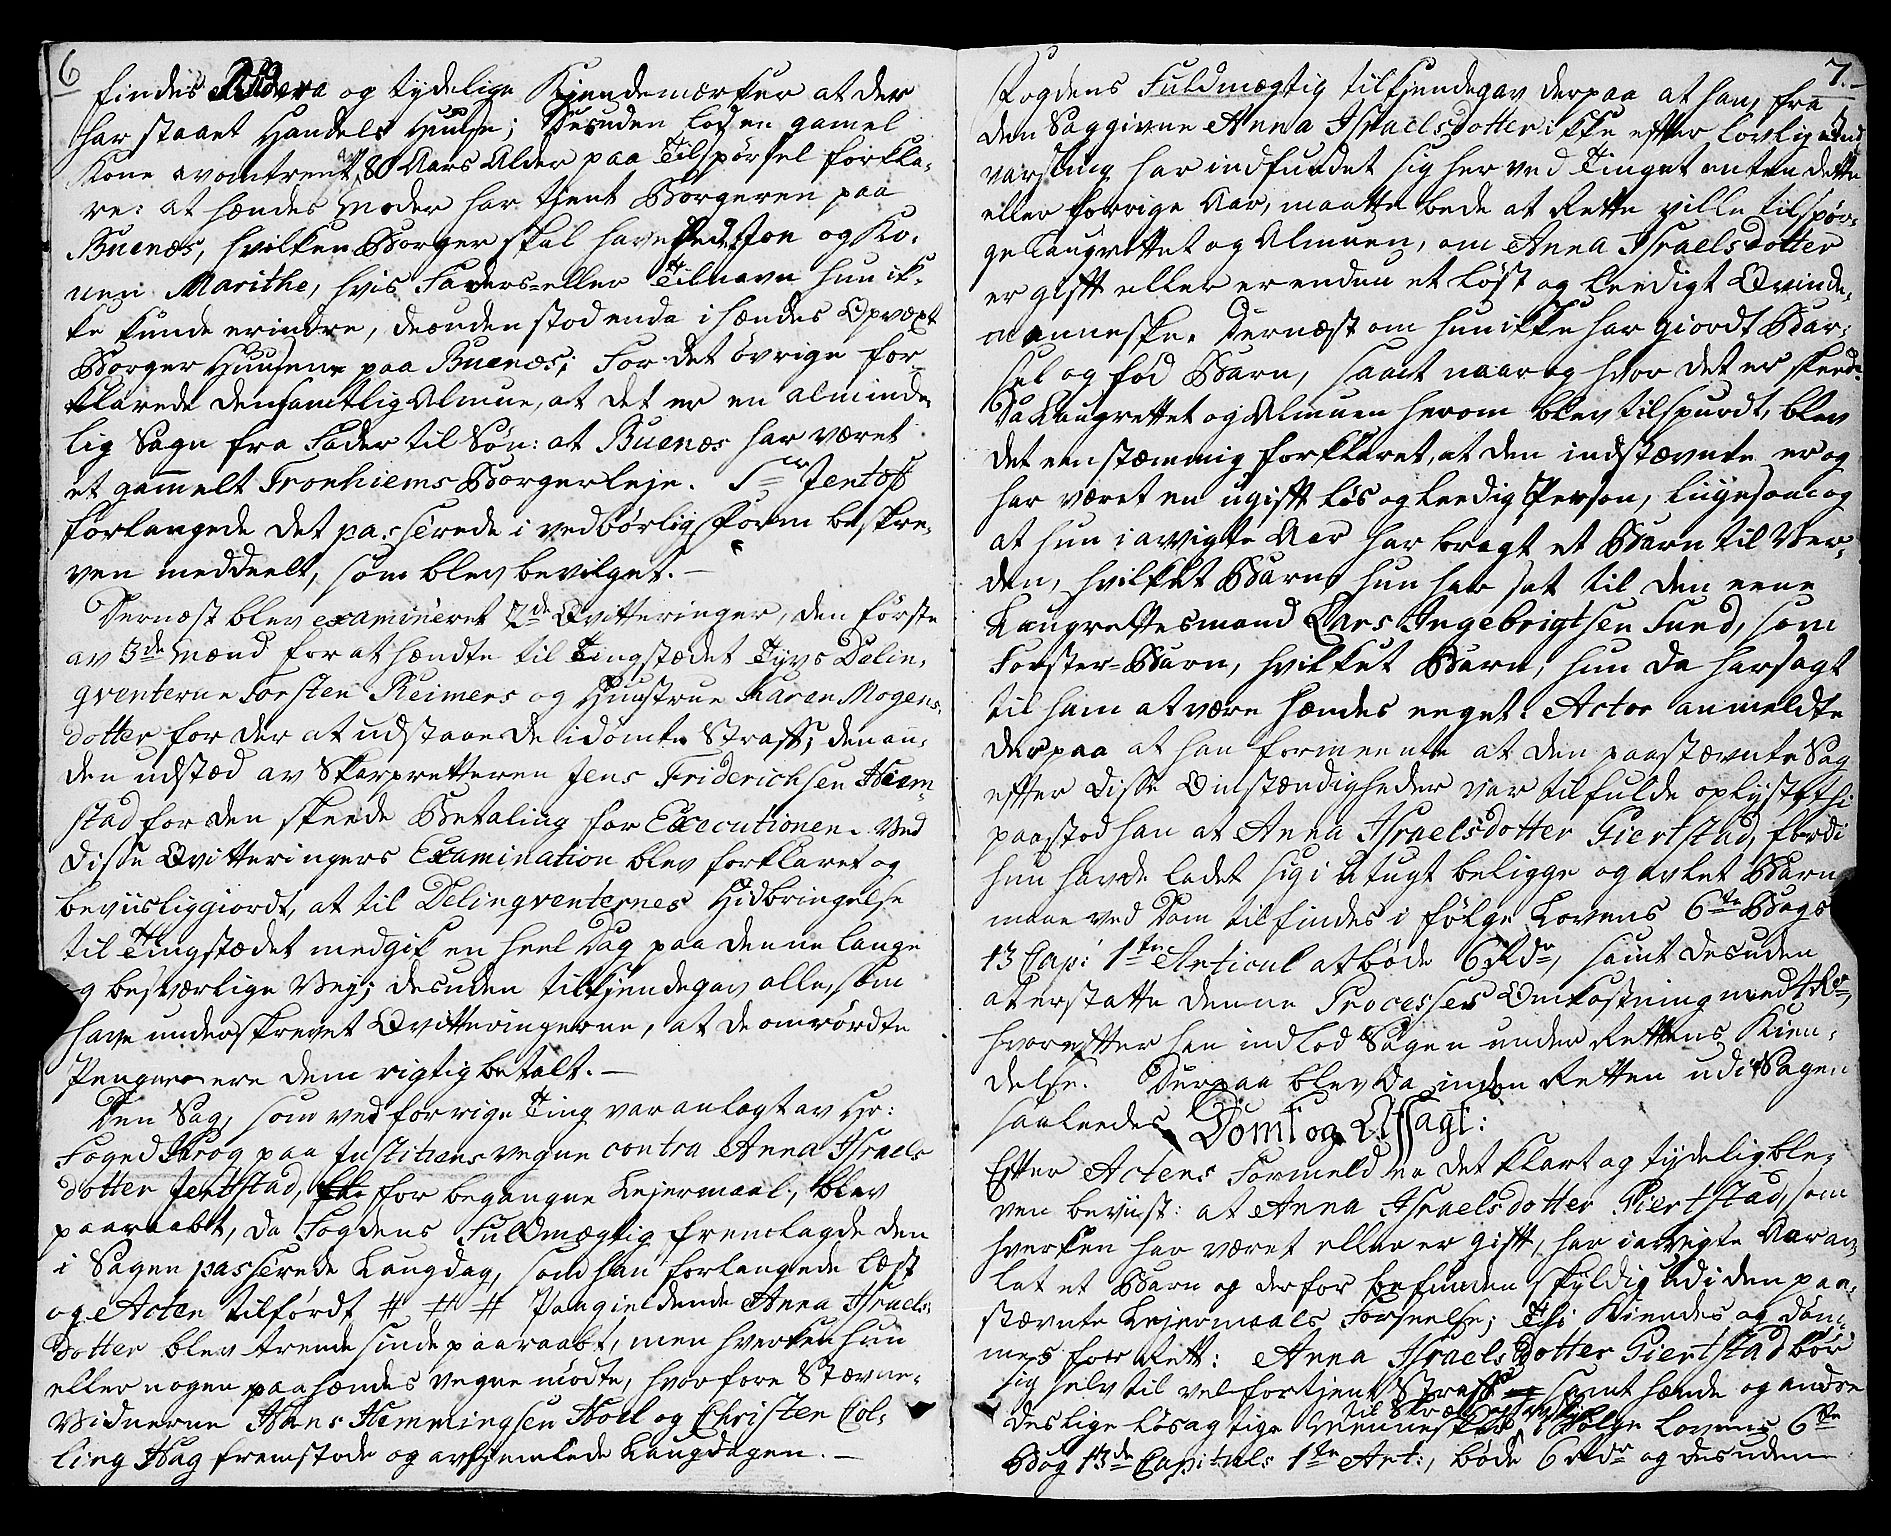 6
findes Rudera og tydelige Kjendemærker at der
har staaet Handels Huuse; Desuden lod en gamel
Kone avomtrent 80 Aars Alder paa Tilspørsel forkla-
re: at hændes Moder har tient Borgeren paa
Buenæs, hvilken Borger skal have hed Jon og Ko-
nen Marithe, hvis Faders- eller Tilnavn hun ik-
ke kunde erindre, desuden stod enda i hændes Opvæxt
Borger Huusene paa Buenæs; For det øvrige for-
klarede den samtlig Almue, at det er en alminde-
lig Sagn fra Fader til Søn: at Buenæs har været
et gammelt Tronhiems Borgerleje. Sr Jentoft
forlangede det passerede i vedbørlig Form beskre-
ven meddeelt, som blev bevilget. —
Dernæst blev examineret 2de Qvitteringer, den første
av 3de Mænd for at hændte til Tingstædet Tyvs Delin-
qventerne Torsten Reimers og Huustrue Karen Mogens-
dotter for der at udstaae de idømte Straff; den an-
den udstæd av Skarpretteren Jens Friderichsen Hiem-
stad for den skeede Betaling for Executionen. Ved
disse Qvitteringers Examination blev forklaret og
beviisliggiordt, at til Delinqventernes Hidbringelse
til Tingstædet medgik en heel Dag paa denne lange
og besværlige Vej; desuden tilkjendegav alle, som
have underskrevet Qvitteringerne, at de omrørdte
Pengene ere dem rigtig betalt. —
Den Sag, som ved forrige Ting var anlagt av Hr:
Foged Krog paa Justitiens vegne contra Anna Israels
dotter Jertstad, for begangne Lejermaal, blev
paaraabt, da Fogdens Fuldmægtig fremlagde den
i Sagen passerede Laugdag, som han forlangede læst
og Acten tilført # # # Paagieldende Anna Israels-
dotter blev trende sinde paaraabt, men hverken hun
eller nogen paa hændes vegne mødte, hvorfore Stævne-
Vidnerne Hans Hemmingsen Hoel og Christen Col-
ling Hag fremstode og avhjemlede Laugdagen. —
7.
Fogdens Fuldmægtig tilkjendegav derpaa at han, fra
den Saggivne Anna Israelsdotter ikke efter lovlig
varsling har indfundet sig her ved Tinget enten dette
eller forrige Aar, maatte bede at Rette ville tilspør-
ge Laugrettet og Almuen, om Anna Israelsdotter
er gift eller er endnu et løst og leedigt Qvinde-
menneske. Dernæst om hun ikke har giordt Bar-
sel og fød Barn, samt naar og hvor det er skeed.
Da Laugrettet og Almuen herom blev tilspurdt, blev
det eenstæmmig forklaret, at den indstævnte er og
har været en ugift løs og leedig Person, liigesom og
at hun i avvigte Aar har bragt et Barn til Ver-
den, hvilket Barn hun har sat til den eene
Laugrettesmand Lars Ingebrigtsen Fund, som
Foster-Barn, hvilket Barn, hun da har sagt
til ham at være hændes eeget. Actor anmeldte
derpaa at han formeente at den paastævnte Sag
efter disse Omstændigheder var tilfulde oplyst, thi
paastod han at Anna Israelsdotter Giertstad, fordi
hun havde ladet sig i Utugt beligge og avlet Barn
maae ved Dom tilfindes i følge Lovens 6te Bogs
13 Cap: 1te Articul at bøde 6 Rdr, samt desuden
at erstatte denne Processes Omkostning med 4 Rdr,
hvorefter han indlod Sagen under Rettens Kien-
delse. Derpaa blev da inden Retten udi Sagen
saaleedes Dømt og Afsagt:
Efter Actens Formeld er det klart og tydelig ble-
ven beviist: at Anna Israelsdotter Giertstad, som
hverken har været eller er gift, har i avvigte Aar av-
let et Barn og derfor befunden skyldig udi den paa-
stævnte Lejermaals Forseelse; Thi Kiendes og døm-
mes for Rett: Anna Israelsdotter Giertstad bør
sig selv til velfortjent Straff samt hænde og andre
deslige løsagtige Mennesker til Skræk i Følge Lovens 6te
Bog 13de Capituls 1te Art:, bøde 6 Rdr og desuden